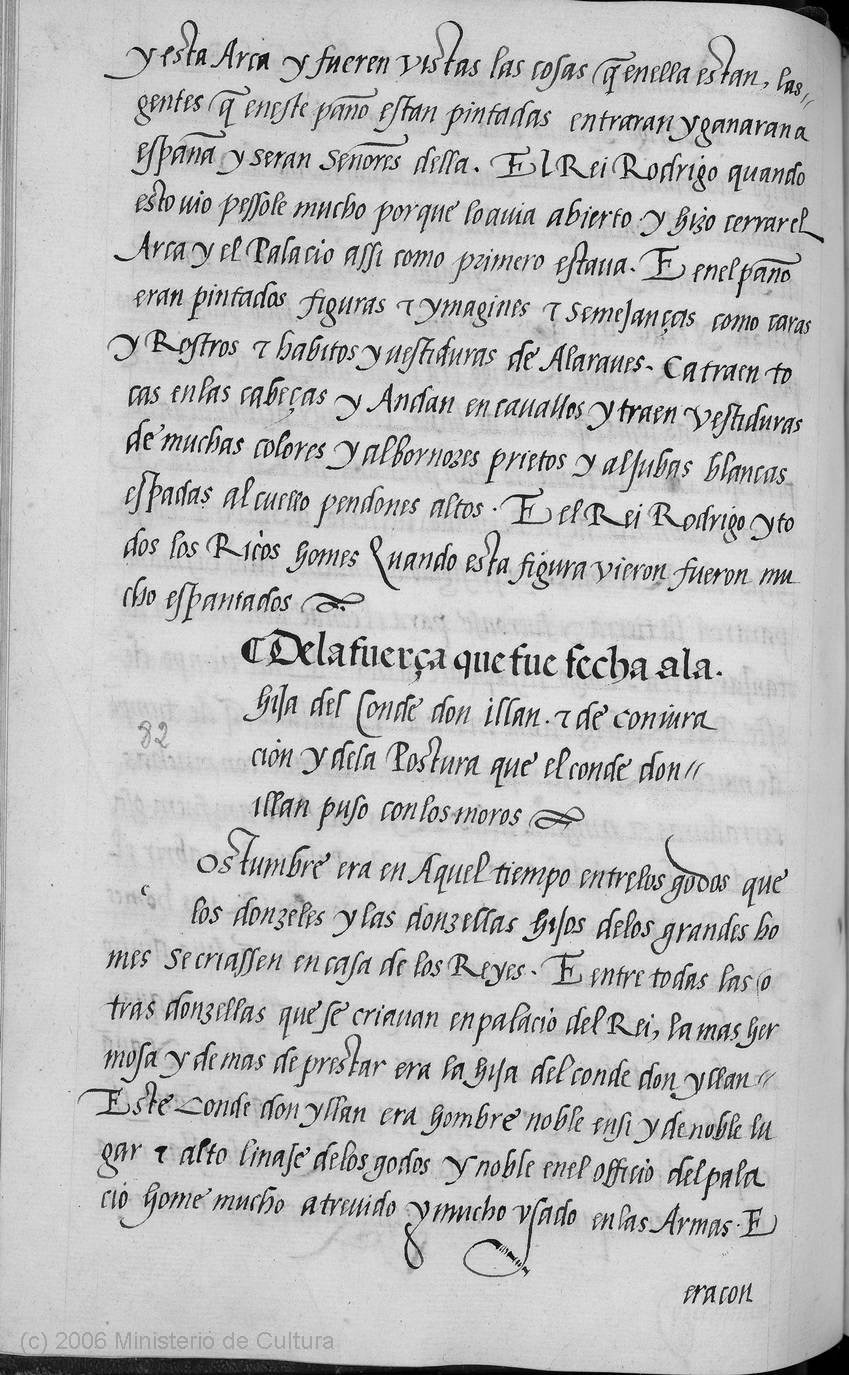 y esta Arca y fueren vistas las cosas q̃ enella estan, las
gentes q̃ eneste paño estan pintadas entraran y ganaran a
españa y seran señores della. E l Rei Rodrigo quando
esto vio pessole mucho porque lo avia abierto y hizo cerrar el
Arca y el Palacio assi como primero estava. E enel paño
eran pintados figuras ⁊ ymagines ⁊ semejanças como caras
y Rostros ⁊ habitos y vestiduras de Alaraves. Ca traen to
cas enlas cabeças y Andan en cavallos y traen vestiduras
de muchas colores y albornozes prietos y aljubas blancas
espadas al cuello pendones altos. E el Rei Rodrigo y to
dos los Ricos homes Quando esta figura vieron fueron mu
cho espantados
¶ De la fuerça que fue fecha a la.
hija del Conde don illan. ⁊ de coniura
cion y dela Postura que el conde don
82
illan puso con los moros
Ostumbre era en Aquel tiempo entre los godos que
c
los donzeles y las donzellas hijos delos grandes ho
mes se criassen en casa de los Reyes. E entre todas las o
tras donzellas que se criavan en palacio del Rei, la mas her
mosa y de mas de prestar era la hija del conde don yllan
Este Conde don yllan era hombre noble ensi y de noble lu
gar ⁊ alto linaje delos godos y noble enel officio del pala
cio home mucho atrevido y mucho vsado enlas Armas. E
era con
(c) 2006 Ministerio de Cultura